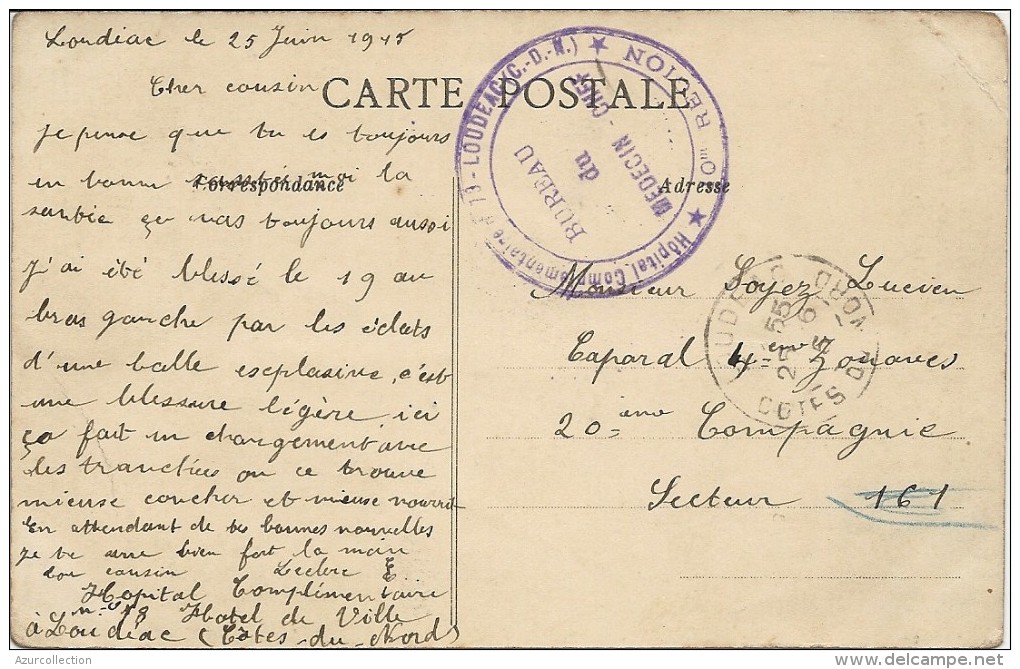 Loudéac le 25 Juin 1915
Cher cousin
CARTE POSTALE
je pense que tu es toujours
en bonne santé moi la
Correspondance
Adresse
santée ça vas toujours aussi
J'ai été blessé le 19 au
bras gauche par les éclats
d'une balle esclplasive, c'est
une blessure légère, ici
ça fait un changement avec
les tranchées on ce trouve
mieuse coucher et mieuse nourrit
En attendant de tes bonnes nouvelles
je te serre bien fort la main
ton cousin Leclerc E
Hopital Complémentaire
n° 78 Hotel de Ville
à Loudéac (Côtes-du-Nord)
Hôpital Complémentaire n° 78 - LOUDEAC (C.-D.-N.)
REGION
BUREAU
du
MEDECIN-CHEF
Monsieur Soyez Lucien
Caparal 4eme Zouaves
20eme Compagnie
Secteur 161
LOUDEAC
COTES DU NORD
Azurcollection
www.delcampe.net